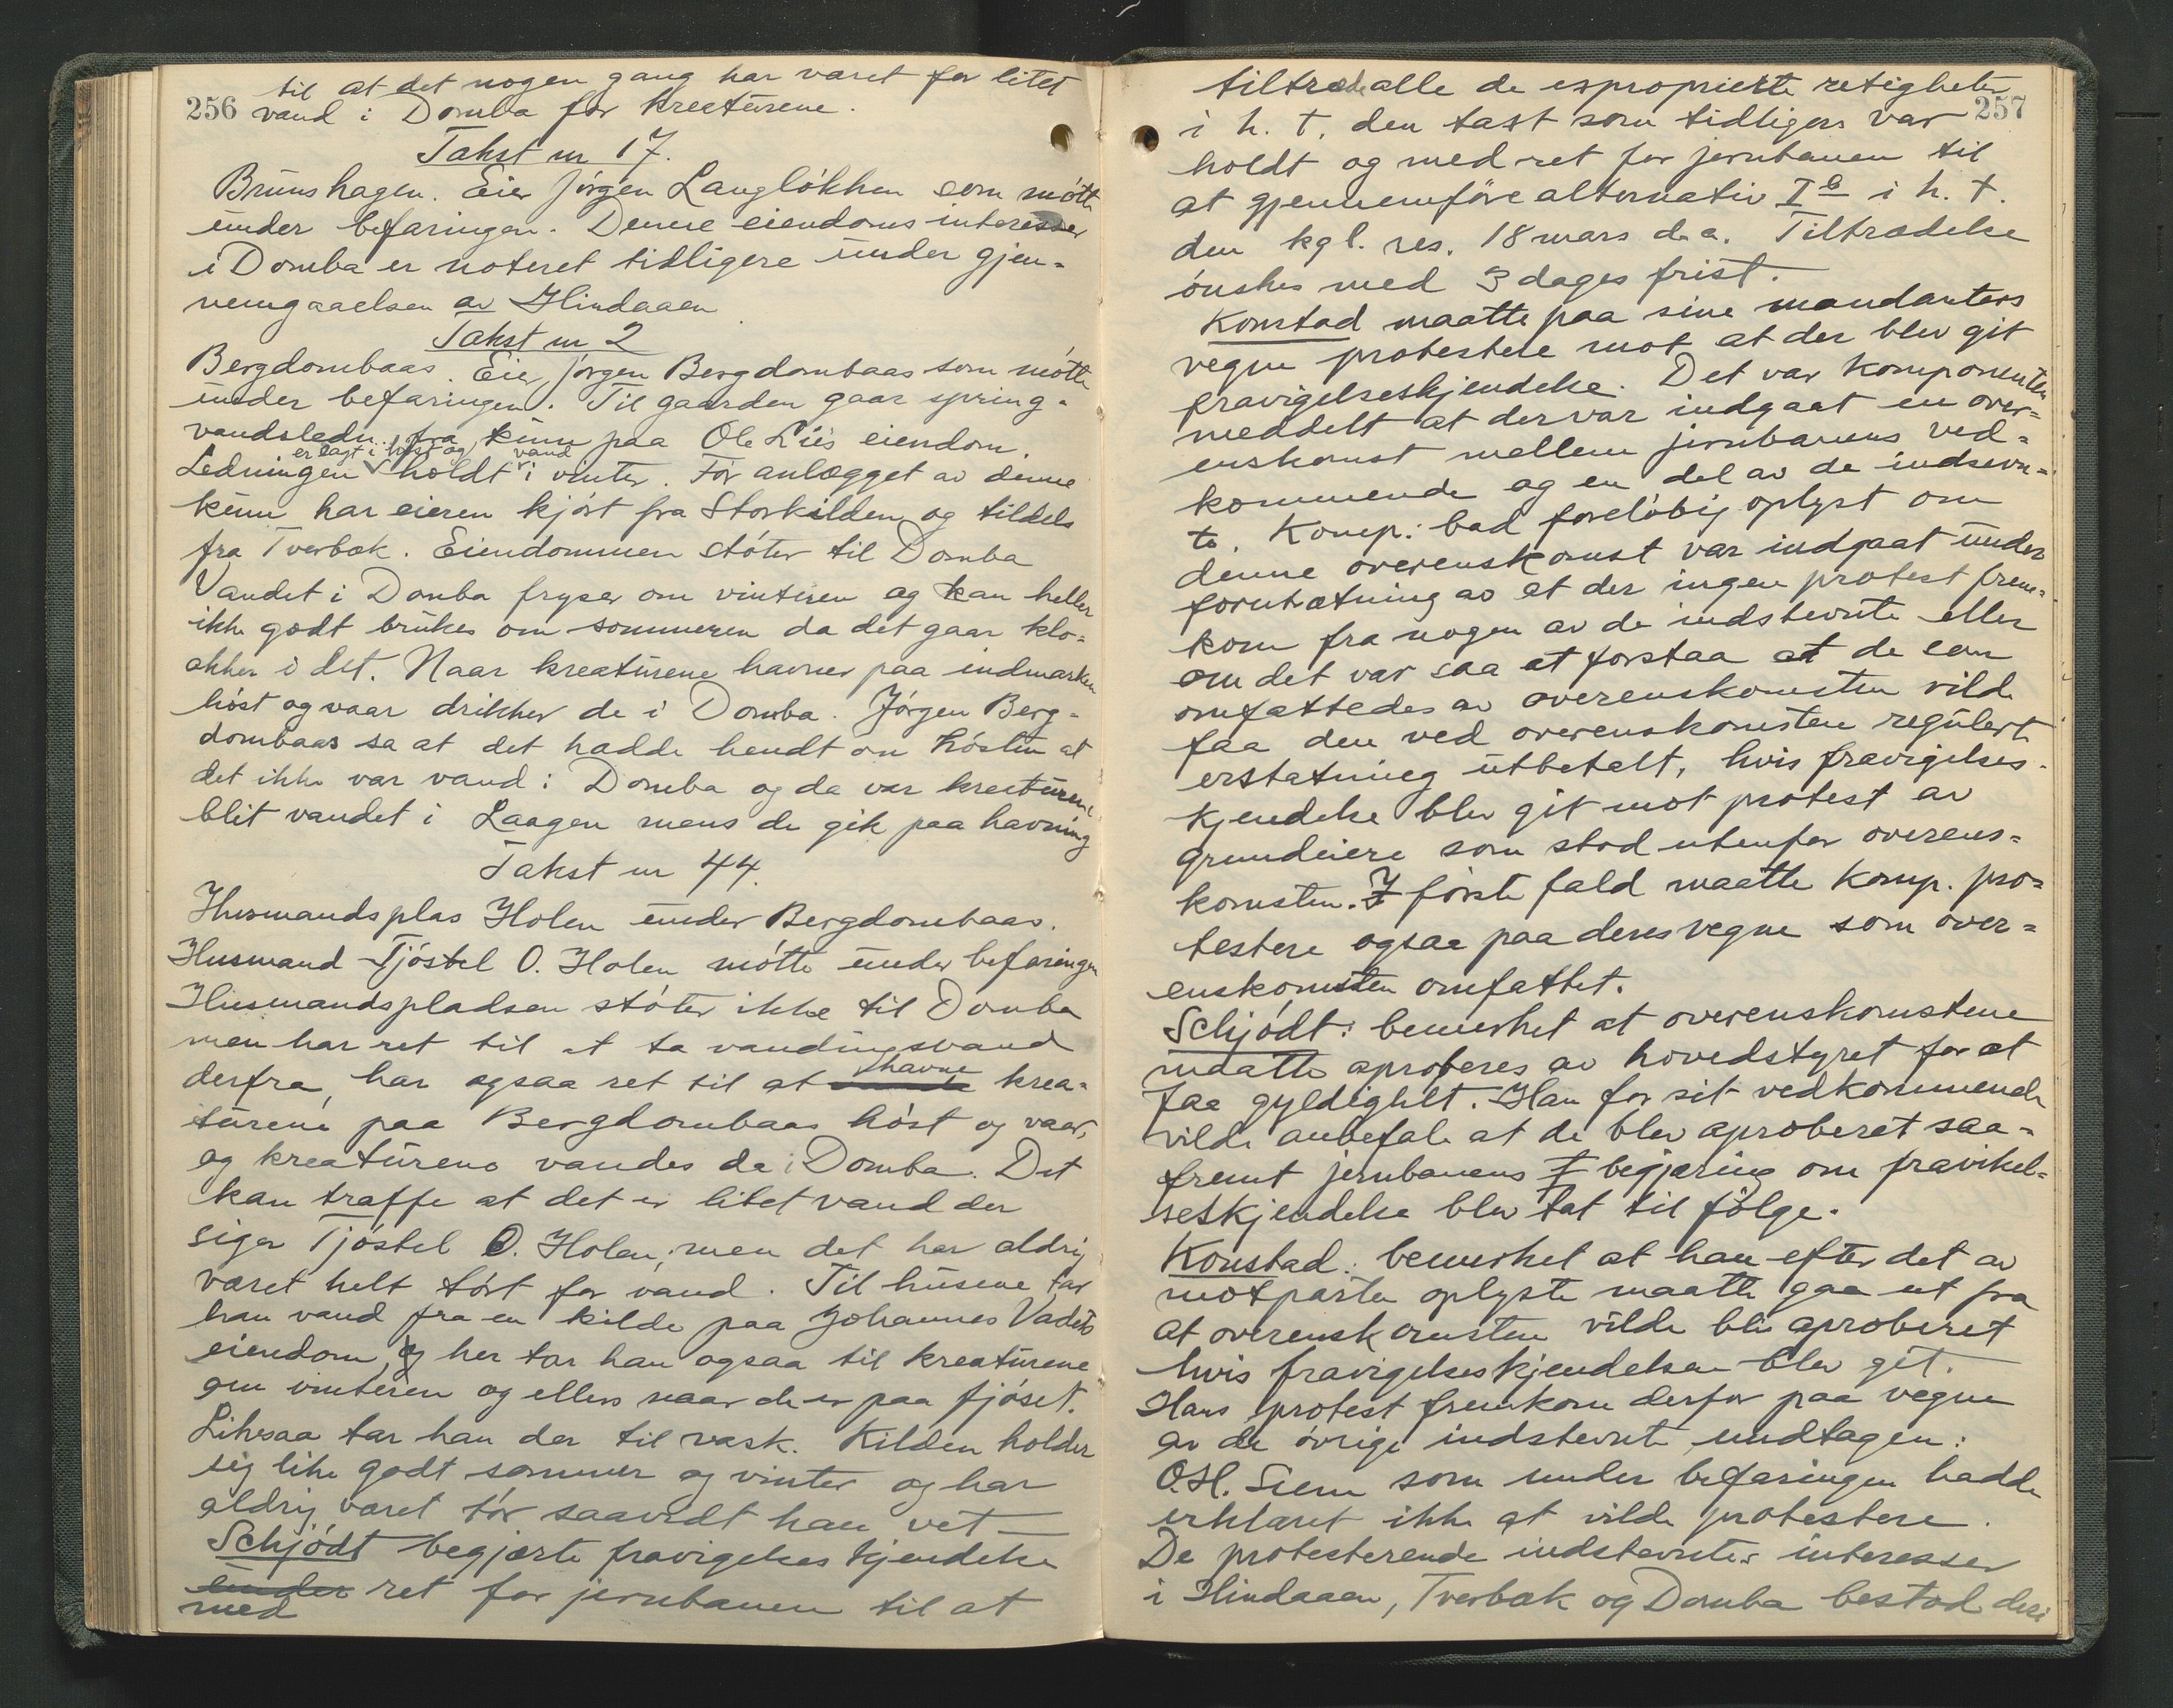 til at det nogen gang har været for litet
256 vand i Domba for kreaturene.
Takst nr 17.
Brunshagen. Eier Jørgen Langløkken som møtte
under befaringen. Denne eiendoms interesser
i Domba er noteret tidligere under gjen-
nemgaaelsen av Hindaaen
Takst nr 2
Bergdombaas. Eier, Jørgen Bergdombaas som møtte
under befaringen. Til gaarden gaar spring-
vandsledn. fra kum paa Ole Liis eiendom.
er lagt i høst og vand
Ledningen holdt i vinter. Før anlægget av denne
kum har eieren kjørt fra Storkilden og tildels
fra Tverbæk. Eiendommen støter til Domba
Vandet i Domba fryser om vinteren og kan heller
ikke godt brukes om sommeren da det gaar klo-
akker i det. Naar kreaturene havner paa indmarken
høst og vaar drikker de i Domba. Jørgen Berg-
dombaas sa at det hadde hendt om høsten at
det ikke var vand i Domba og da var kreaturene
blit vandet i Laagen mens de gik paa havning
Takst nr 44.
Husmandsplas Holen under Bergdombaas.
Husmand Tjøstel O. Holen møtte under befaringen
Husmandspladsen støter ikke til Domba
men har ret til at ta vandingsvand
havne
derfra, har ogsaa ret til at krea-
turene paa Bergdombaas høst og vaar,
og kreaturene vandes da i Domba. Det
kan træffe at det er litet vand der
siger Tjøstel O. Holen, men det har aldrig
været helt tørt for vand. Til husene tar
han vand fra en kilde paa Johannes Vadets
eiendom, og her tar han ogsaa til kreaturene
om vinteren og ellers naar de er paa fjøset.
Likesaa tar han der til vask. Kilden holder
sig like godt sommer og vinter og har
aldrig været tør saavidt han vet
Schjødt begjærte fravigelseskjendelse
under ret for jernbanen til at
med
tiltræde alle de exproprierte retigheter
257
i h. t. den takst som tidligere var
holdt og med ret for jernbanen til
at gjennemføre alternativ I b i h. t.
den kgl. res. 18 mars d. a. Tiltrædelse
ønskes med 3 dages frist.
Konstad maatte paa sine mandanters
vegne protestere mot at der blev git
fravigelseskjendelse. Det var komponenten
meddelt at der var indgaat en over-
enskomst mellem jernbanens ved-
kommende og en del av de indstevn-
te. Komp: bad foreløbig oplyst om
denne overenskomst var indgaat under
forutsætning av at der ingen protest frem-
kom fra nogen av de indstevnte eller
om det var saa at forstaa at de som
omfattedes av overenskomsten vilde
faa den ved overenskomsten regulerte
erstatning utbetalt, hvis fravigelses-
kjendelse blev git mot protest av
grundeiere som stod utenfor overens-
komsten. I første fald maatte komp. pro-
testere ogsaa paa deres vegne som over-
enskomsten omfattet.
Schjødt: bemerket at overenskomstene
maatte aproberes av hovedstyret for at
faa gyldighet. Han for sit vedkommende
vilde anbefale at de blev aproberet saa-
fremt jernbanens begjæring om fravikel-
seskjendelse blev tat til følge.
Konstad: bemerket at han efter det av
motparten oplyste maatte gaa ut fra
at overenskomsten vilde bli aproberet
hvis fravigelseskjendelsen blev git.
Hans protest fremkom derfor paa vegne
av de øvrige indstevnte undtagen:
O.H. Siem som under befaringen hadde
erklæret ikke at vilde protestere.
De protesterende indstevntes interesser
i Hindaaen, Tverbæk og Domba bestod deri